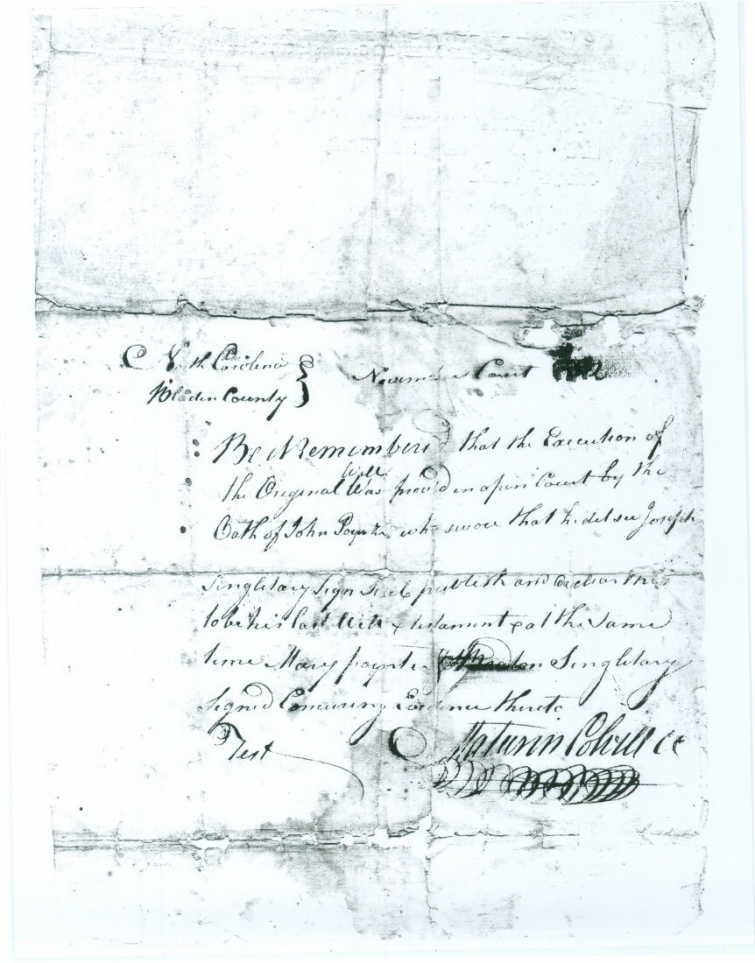 North Carolina
Bladen County } November Court
Be it Remembered that the Execution of
will
the Original Was proved in open Court by the
Oath of John Poynter who swore that he did see Joseph
Singletary Sign Seal publish and declair this
to be his last Will & testament & at the same
time Mary Poynter Singletary
signed Concuring Evidence thereto
Test Maturin Colvill CC